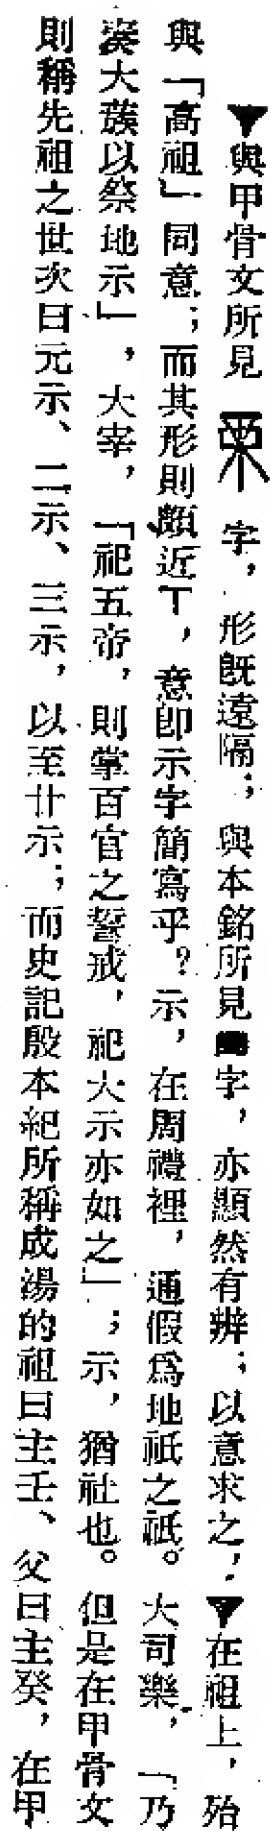 ▼與甲骨文所見字，形既遠隔；與本銘所見字，亦顯然有辨；以意求之，▼在祖上，殆
與「高祖」同意；而其形則頗近丅，意卽示字簡寫乎？示，在周禮裡，通假爲地祇之祇。大司樂，「乃
奏大蔟以祭地示」，大宰，「祀五帝，則掌百官之誓戒，祀大示亦如之」；示，猶社也。但是在甲骨文
則稱先祖之世次曰元示、二示、三示，以至廿示；而史記殷本紀所稱成湯的祖曰主壬、父曰主癸，在甲